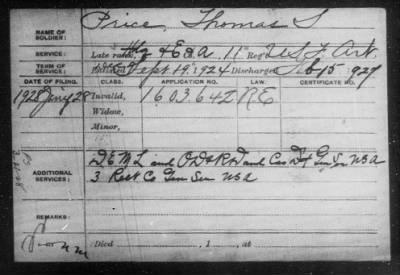 NAME OF SOLDIER: Price, Thomas S
SERVICE: Late rank, Hq & E Co. A, 11" Reg't U.S. F Art.
TERM OF SERVICE: Enlisted Sept 19" 1924 Discharged Feb 15 1927
DATE OF FILING. CLASS. APPLICATION NO. LAW. CERTIFICATE NO.
1928 Jany 28 Invalid, 1603642 R E
Widow,
Minor,
ADDITIONAL SERVICES: D E M L and and Gen Ser USA
3 Rect Co Gen Ser USA
REMARKS:
Died , 1 , at